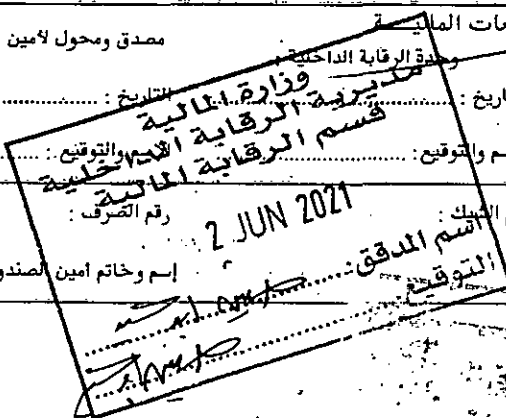 عات الماليـــة
مصدق ومحول لأمين
وحدة الرقابة الداخلية :
اريخ : ............
التاريخ : ............
م والتوقيع : ............
الاسم والتوقيع : ............
الشيك :
رقم الصرف :
إسم وخاتم أمين الصندو
وزارة المالية
مديرية الرقابة الداخلية
قسم الرقابة المالية
2 JUN 2021
اسم المدقق : ............
التوقيع ............